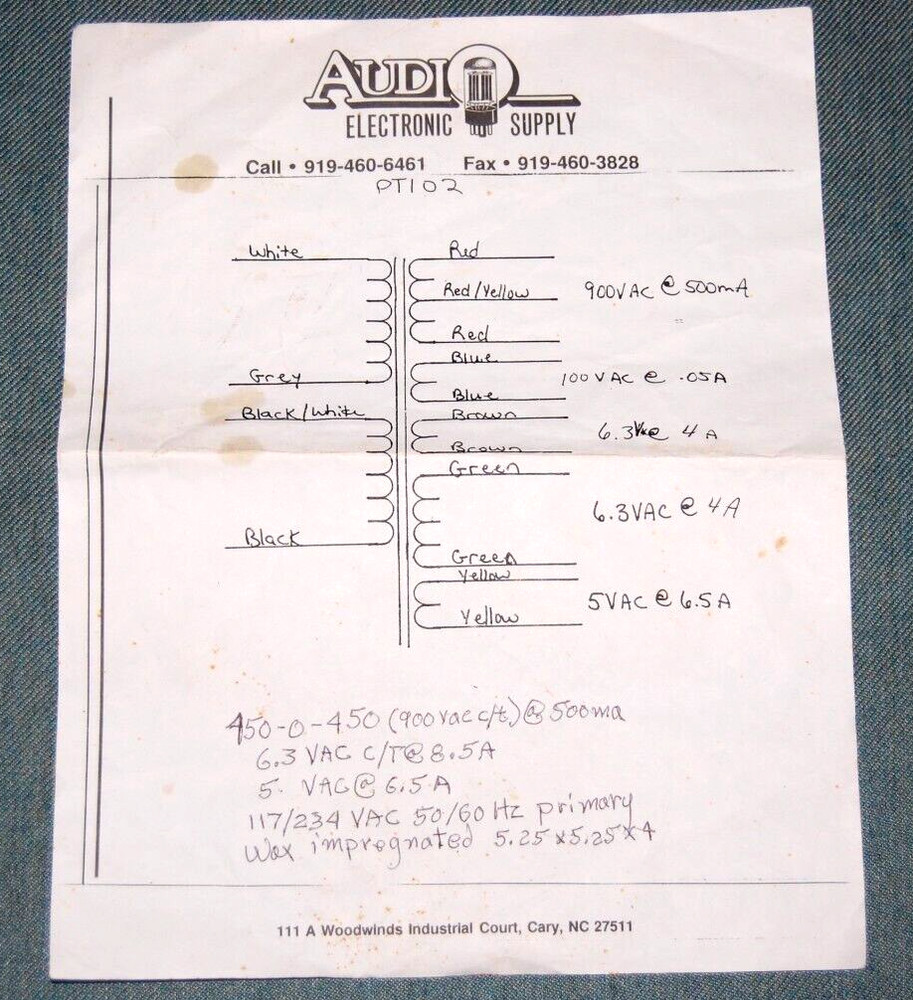 AUDIO
ELECTRONIC SUPPLY
Call • 919-460-6461 Fax • 919-460-3828
PT102
White Red
Red/Yellow 900VAC @ 500mA
Red
Grey Blue
100VAC @ .05A
Blue
Black/White Brown
6.3Vac 4A
Brown
Green
6.3VAC @ 4A
Black Green
Yellow
5VAC @ 6.5A
Yellow
450-0-450 (900vac c/t) @ 500ma
6.3 VAC C/T @ 8.5A
5. VAC @ 6.5A
117/234 VAC 50/60 Hz primary
Wax impregnated 5.25x5.25x4
111 A Woodwinds Industrial Court, Cary, NC 27511